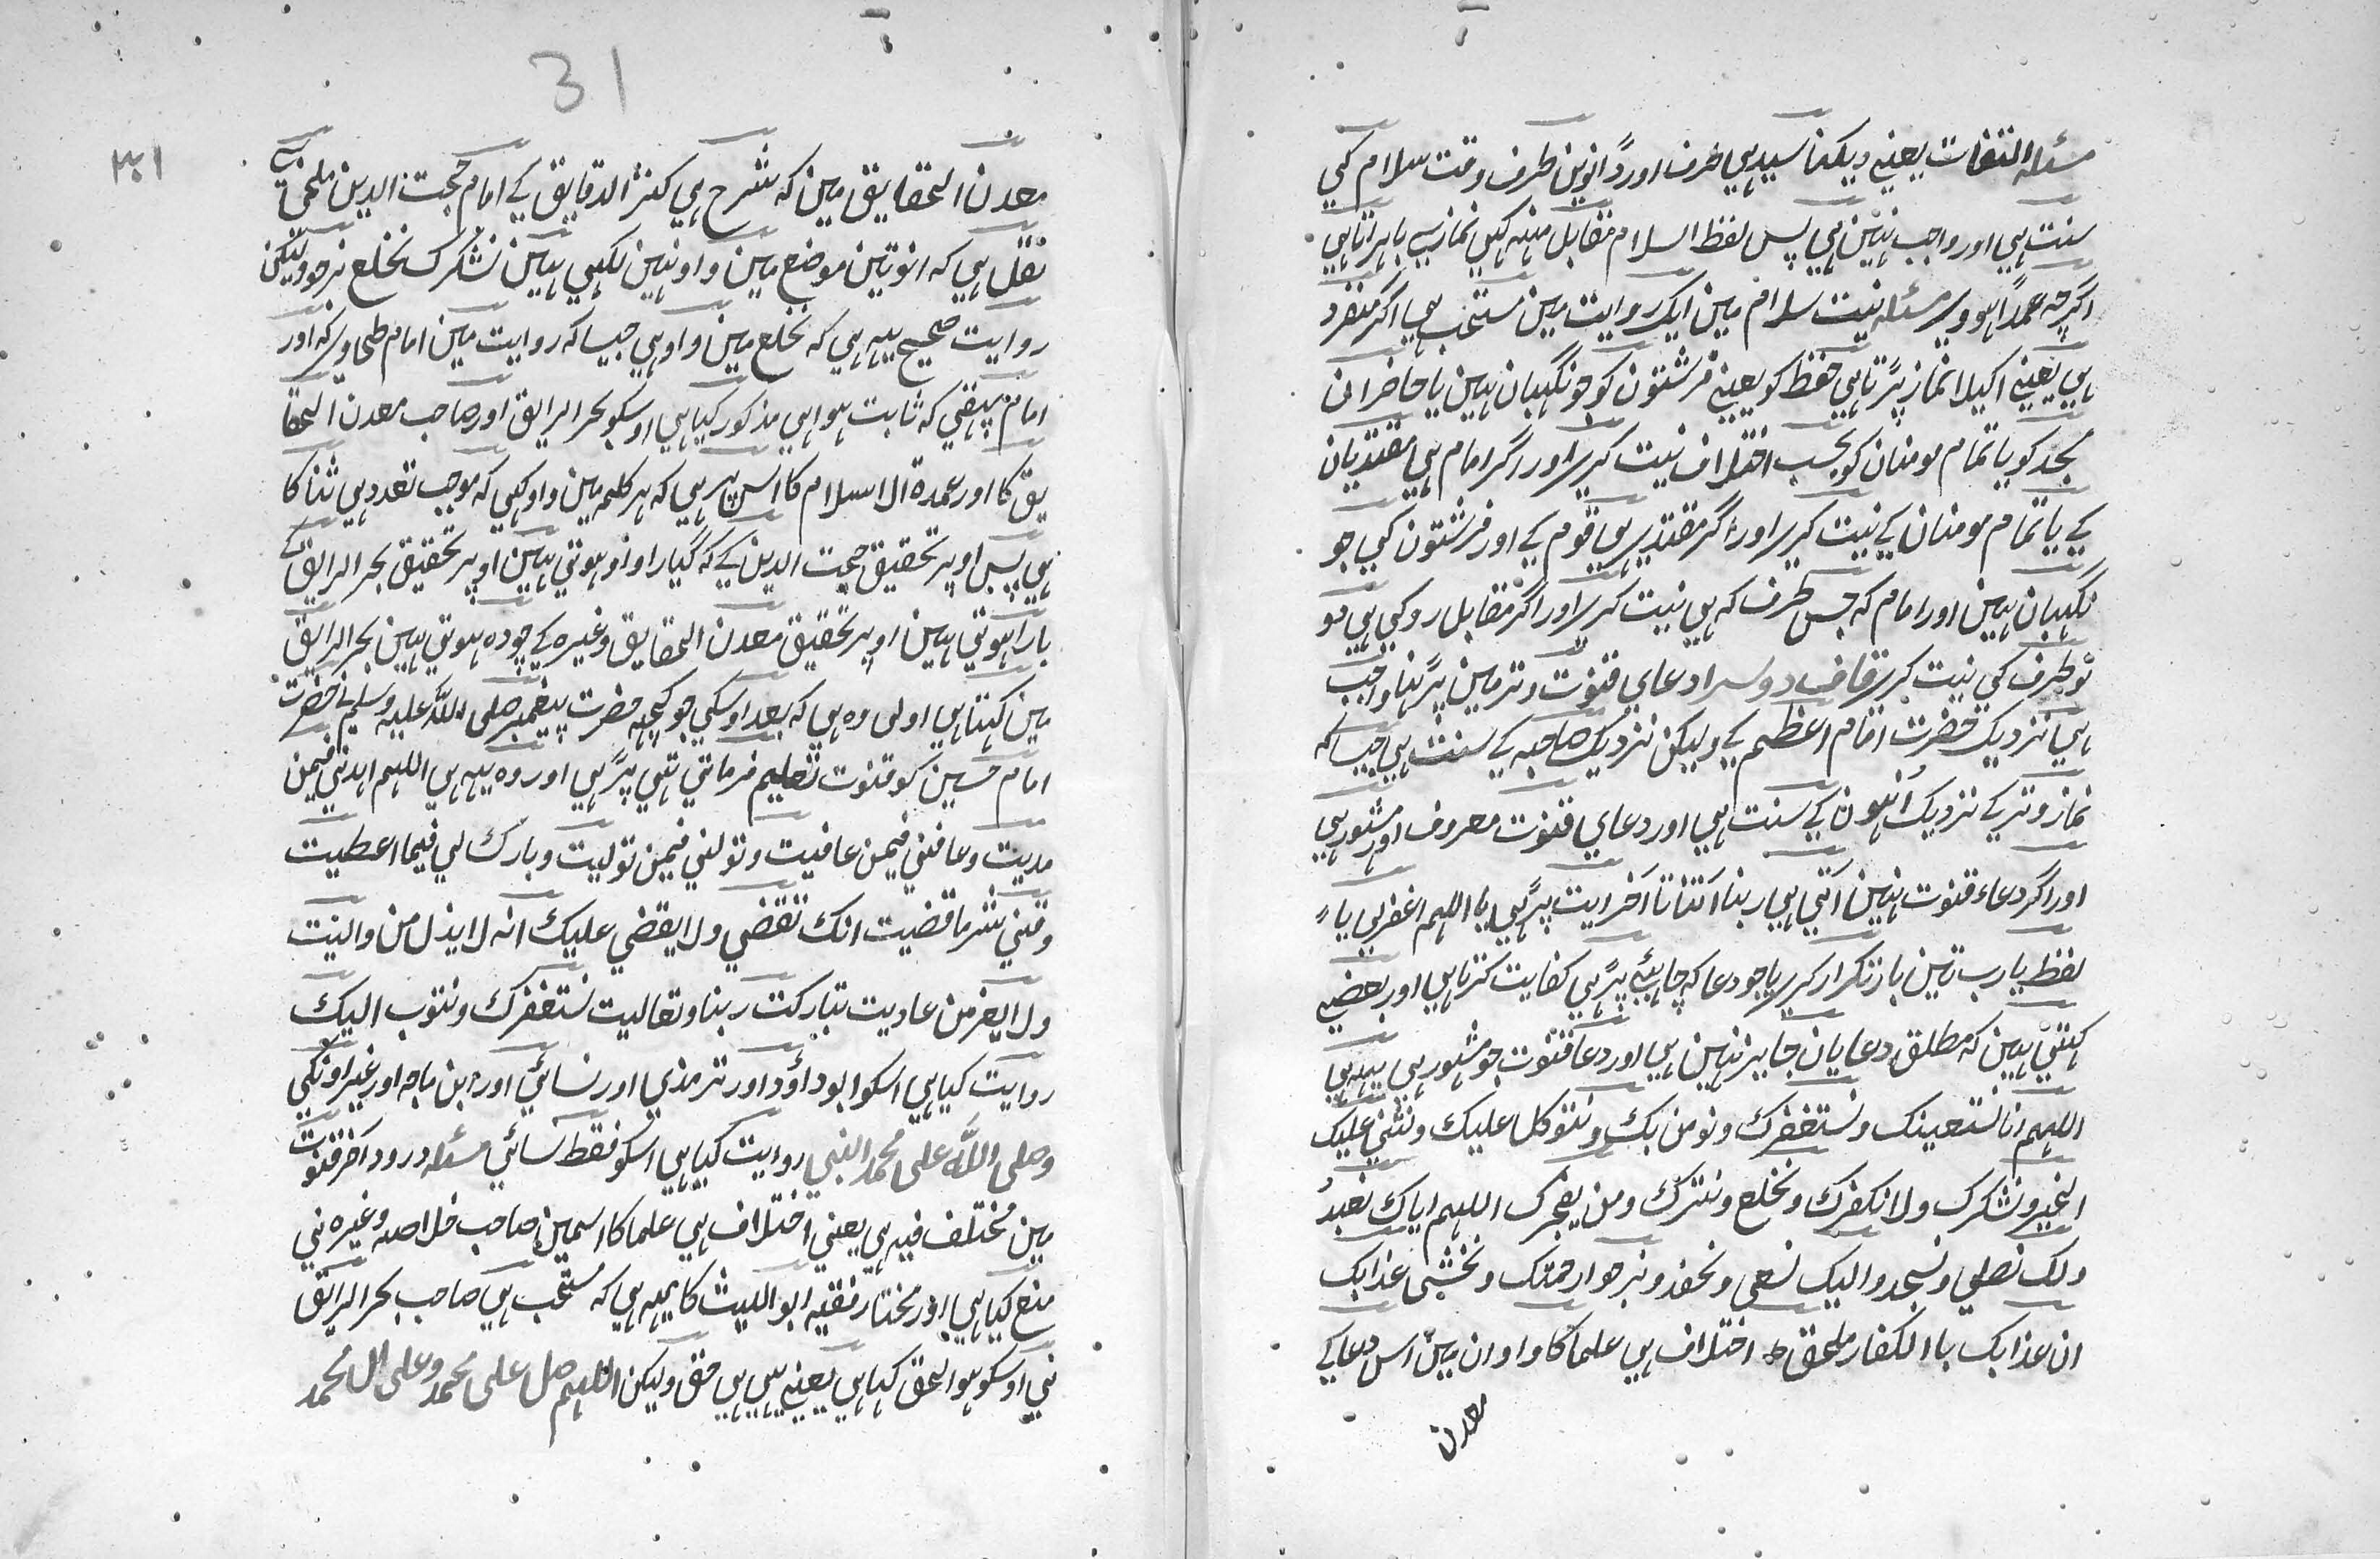 مسئله التفات یعنے دیکنا سیدہی طرف اور ڈانوین طرف وقت سلام کی
سنت ہی اور واجب نہین ہی پس لفظ السلام مقابل منہ کہی نماز سی باہر اتاہی
اگرچہ عمداً ہووی مسئله نیت سلام مین ایک روایت مین مستحب ہی اگر منفرد
ہی یعنے اکیلا نماز پڑتاہی حفظ کو یعنے فرشتون کو جو نگہبان ہین یا حاضران
مجد کو یا تمام مومنان کو بحسب اختلاف نیت کری اور اگر امام ہی مقتدیان
کے یا تمام مومنان کے نیت کری اور اگر مقتدی ہی قوم کے اور فرشتون کی جو
نگہبان ہین اور امام کہ جس طرف کہ ہی نیت کری اور اگر مقابل روکی ہی دو
نو طرف کی نیت کری قاف دوسرا دعای قنوت وتر مین پڑنا واجب
ہی نزدیک حضرت امام اعظم کے ولیکن نزدیک صاحبہ کے سنت ہی جیساکہ
نماز وتر کے نزدیک اُنہون کے سنت ہی اور دعای قنوت معروف اور مشہور ہی
اور اگر دعاء قنوت نہین آتی ہی ربنا اٰتنا تا آخر ایت پڑہی یا اللهم اغفرلی یا
لفظ یا رب تین بار تکرار کری یا جو دعا کہ چاہئے پڑہی کفایت کرتاہی اور بعضے
کہتی ہین کہ مطلق دعایان جایز نہین ہی اور دعا قنوت جو مشہور ہی یہہ ہی
اللهم انا نستعینک ونستغفرک ونومن بک ونتوکل علیک ونثنی علیک
الخیر ونشکرک ولا نکفرک ونخلع ونترک ومن یفجرک اللهم ایاک نعبد
ولک نصلی ونسجد والیک نسعی ونحفد ونرجوا رحمتک ونخشی عذابک
ان عذابک باالکفار ملحق ط اختلاف ہی علما کا واوان مین اس دعا کے
معدن
31
۳۱
معدن الحقایق مین کہ شرح ہی کنز الدقایق کے امام حجت الدین بلخی سی
نقل ہی کہ انو تین موضع مین واو نہین لکہی ہین نشکرک نخلع نرجو ولیکن
روایت صحیح یہہ ہی کہ نخلع مین واو ہی جیساکہ روایت مین امام طحاوی کہ اور
امام بیہقی کہ ثابت ہواہی مذکور کیاہی اوسکو بحر الرایق اور صاحب معدن الحقا
یق کا اور عمدۃ الاسلام کا اس پر ہی کہ ہر کلمہ مین واو کہی کہ موجب تعدد ہی ثنا کا
ہی پس اوپر تحقیق حجت الدین کے کہ گیارا واو ہوتی ہین اوپر تحقیق بحر الرایق کے
بارا ہوتی ہین اوپر تحقیق معدن الحقایق وغیرہ کے چودہ ہوتی ہین بحر الرایق
مین کہتاہی اولی وہ ہی کہ بعد اوسکی جو کچہہ حضرت پیغمبر صلی الله علیه وسلم نے حضرت
امام حسین کو قنوت تعلیم فرماتی تہی پڑہی اور وہ یہہ ہی اللهم اهدنی فیمن
هدیت وعافنی فیمن عافیت وتولنی فیمن تولیت وبارک لی فیما اعطیت
وقنی شرما قضیت انک تقضی ولا یقضی علیک انه لا یذل من والیت
ولا یعز من عادیت تبارکت ربنا وتعالیت نستغفرک ونتوب الیک
روایت کیاہی اسکو ابو داؤد اور ترمذی اور نسائی اور ابن ماجه اور غیر اونکی
وصلی الله علی محمد النبی روایت کیاہی اسکو فقط نسائی مسئله درود آخر قنوت
مین مختلف فیه ہی یعنی اختلاف ہی علما کا اسمین صاحب خلاصه وغیرہ نی
منع کیاہی اور مختار فقیه ابو اللیث کا یہہ ہی کہ مستحب ہی صاحب بحر الرایق
نی اوسکو هو الحق کہاہی یعنے یہی ہی حق ولیکن اللهم صل علی محمد وعلی ال محمد